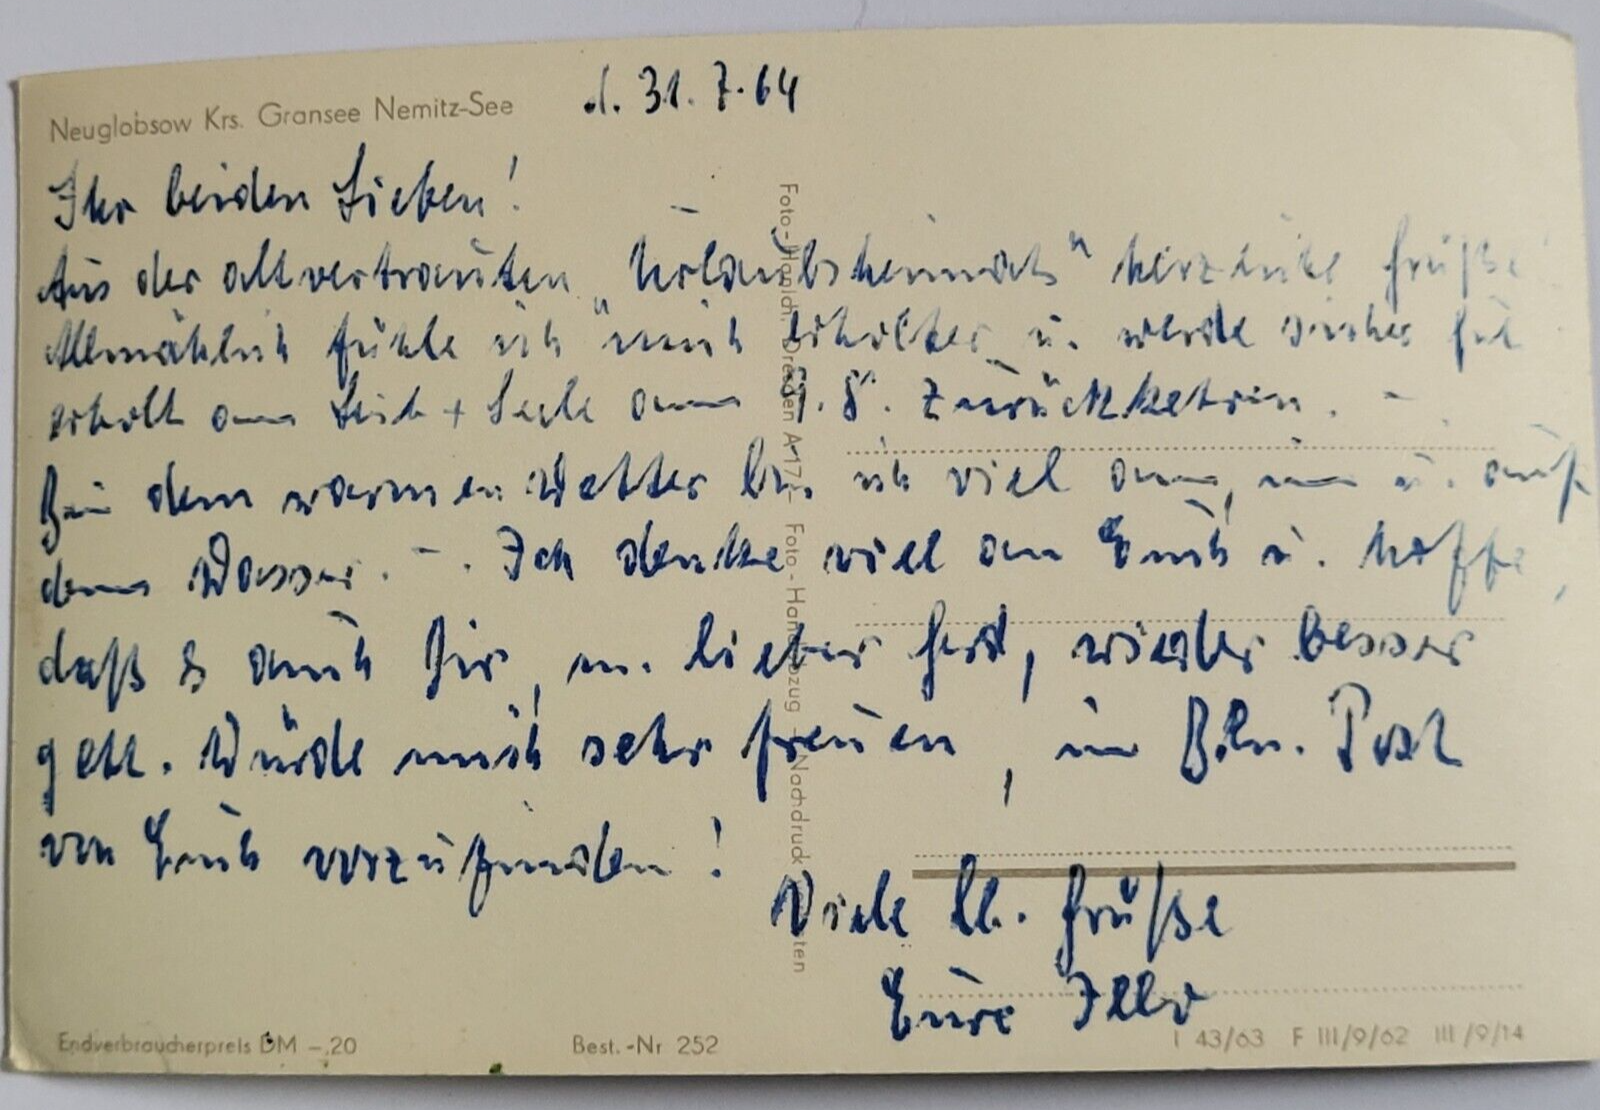 Neuglobsow Krs. Gransee Nemitz-See
d. 31.7.64
Ihr beiden Lieben!
Aus der altvertrauten „Urlaubsheimat" herzliche Grüße!
Allmählich fühle ich mich erholter u. werde sicher gut
erholt an Leib + Seele am 9.8. zurückkehren. –.
Bei dem warmen Wetter bin ich viel am, im u. auf
dem Wasser. –. Ich denke viel an Euch u. hoffe,
daß es auch Dir, m. lieber Gerd, wieder besser
geht. Würde mich sehr freuen, in Bln. Post
von Euch vorzufinden!
Viele lb. Grüße
Eure
Foto-Handabzug - Nachdruck
Endverbraucherpreis DM -,20
Best.-Nr 252
I 43/63 F III/9/62 III/9/14